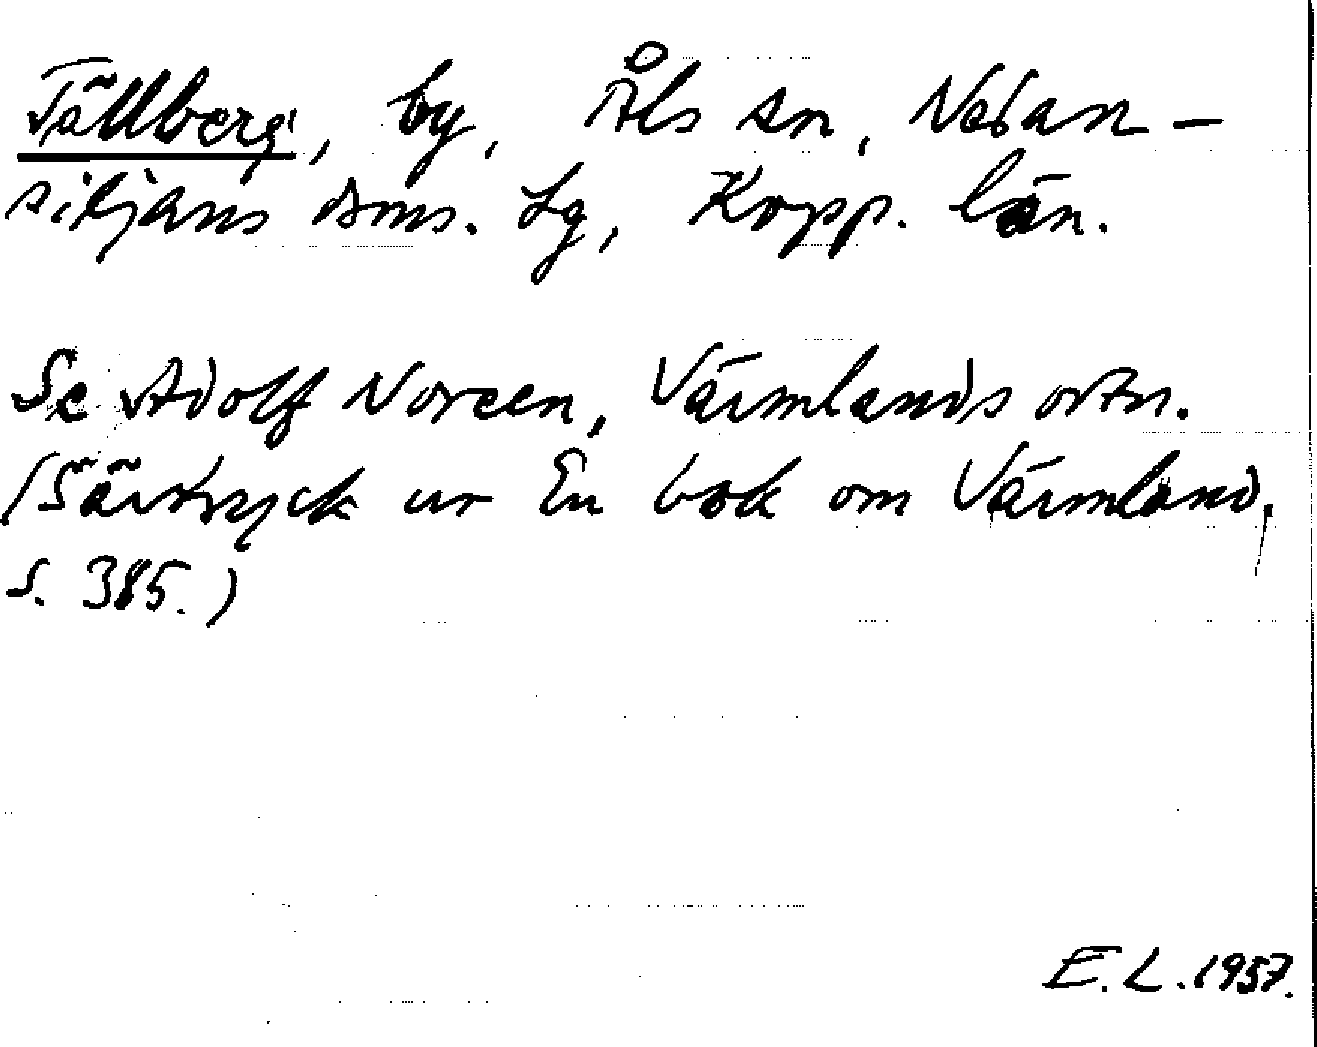 Tällberg, by, Åls sn, Nedan-
siljans doms. Lg, Kopp. län.
Se Adolf Noreen, Värmlands ortn.
(Särtryck ur En bok om Värmland,
s. 385.)
E.L. 1957.